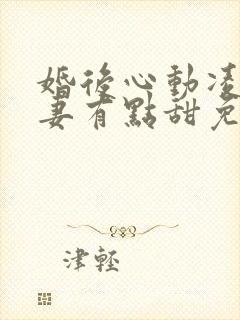 婚後心動凌
妻有點甜免
津輕